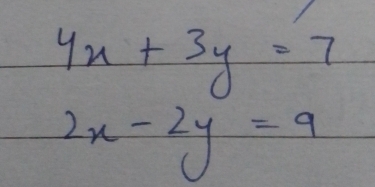 4x + 3y = 7
2x - 2y = 9